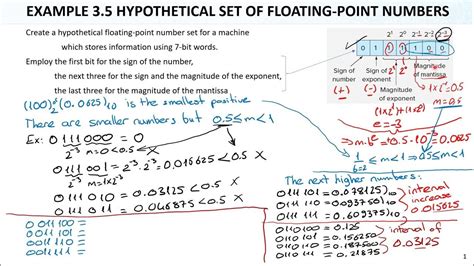 EXAMPLE 3.5 HYPOTHETICAL SET OF FLOATING-POINT NUMBERS
Create a hypothetical floating-point number set for a machine
which stores information using 7-bit words.
Employ the first bit for the sign of the number,
the next three for the sign and the magnitude of the exponent,
the last three for the magnitude of the mantissa
2¹ 2⁰ 2⁻¹ 2⁻² 2⁻³
0 1 1 1 1 0 0
Sign of number
Sign of exponent
Magnitude of exponent
Magnitude of mantissa
(+) (-)
m=0.5
e=-3
(0.0625)₁₀ is the smallest positive
There are smaller numbers but 0.5≤m<1
Ex: 0 111 000 = 0
2⁻³ m=0<0.5 X
0 111 001 = 2⁻³·2⁻³=0.015625<0.5 X
0 111 010 = 0.03125<0.5 X
0 111 011 = 0.046875<0.5 X
⇒ m·bᵉ=0.5·10⁻³=0.0625
1/b ≤ m < 1 ⇒ 0.5≤m<1
b=2
The next higher numbers:
0111 101 = 0.078125)₁₀
0111 110 = 0.093750)₁₀
0111 111 = 0.109375)₁₀
interval
increase
0.015625
0 011 100 =
0 011 101 =
0 011 110 =
0 011 111 =
0110 100 = 0.125
0110 101 = 0.156250
0110 110 = 0.187500
0110 111 = 0.21875
interval of
0.03125
1